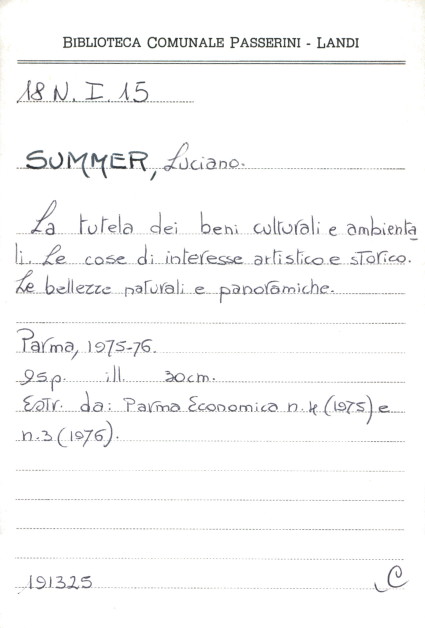 BIBLIOTECA COMUNALE PASSERINI - LANDI
18 N. I. 15
SUMMER, Luciano.
La tutela dei beni culturali e ambienta
li. Le cose di interesse artistico e storico.
Le bellezze naturali e panoramiche.
Parma, 1975-76.
95p. ill. 30cm.
Estr. da: Parma Economica n. 4 (1975) e
n. 3 (1976).
191325 C